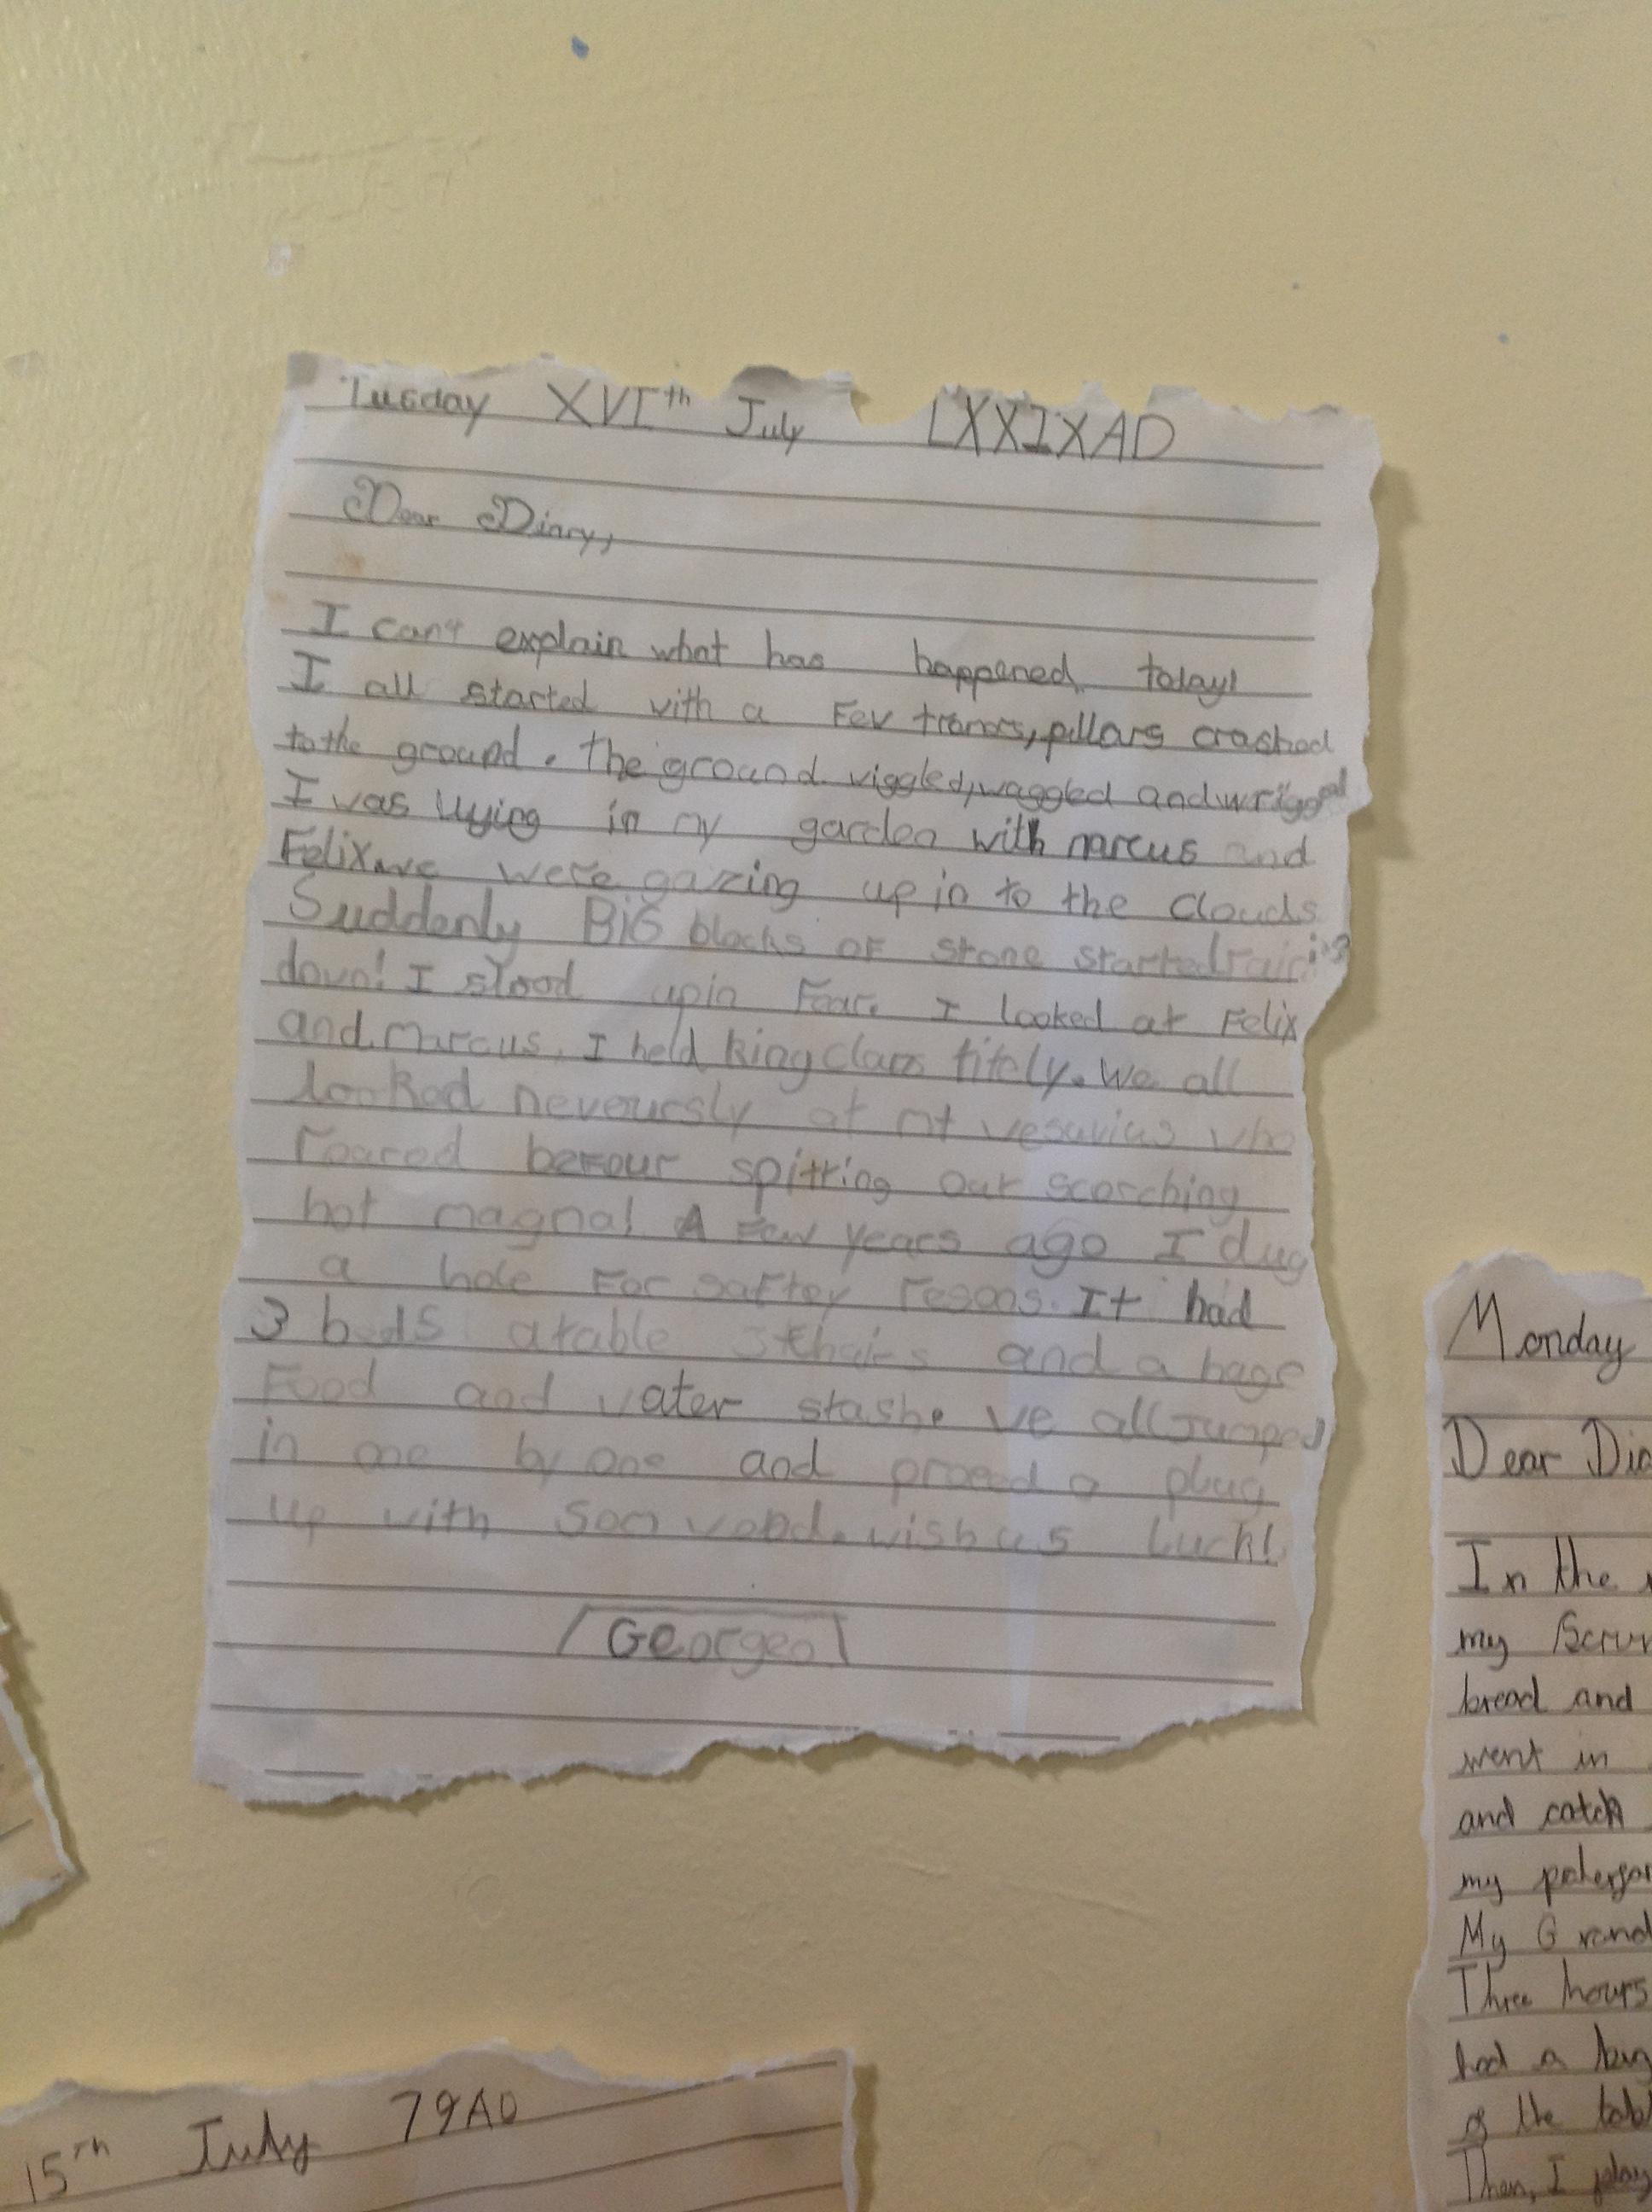 Tuesday XVIth July LXXIXAD
Dear Diary,
I can't explain what has happened today!
I all started with a Few tramors, pillars crashed
to the ground. The ground viggled, waggled and wriggeld
I was llying in my garden with marcus and
Felix we were gazing up in to the clouds
Suddenly BiG blocks oF stone started raining
down! I stood up in Fear. I looked at Felix
and Marcus. I held titely. We all
looked neveoursly at mt vesuvius who
roared beFour spitting out scorching
hot magma! A Few years ago I dug
a hole For saFtey resons. It had
3 beds a table 3 chairs and a hage
Food and water stashe we all Jumped
in one by one and a plug
up with som wood. wish us luck!
Georgeo
Monday
Dear Dia
In the
my
bread and
went in
and catch
my
My Grand
Three hours
had a
of the tabl
Then, I play
15th July 79AD